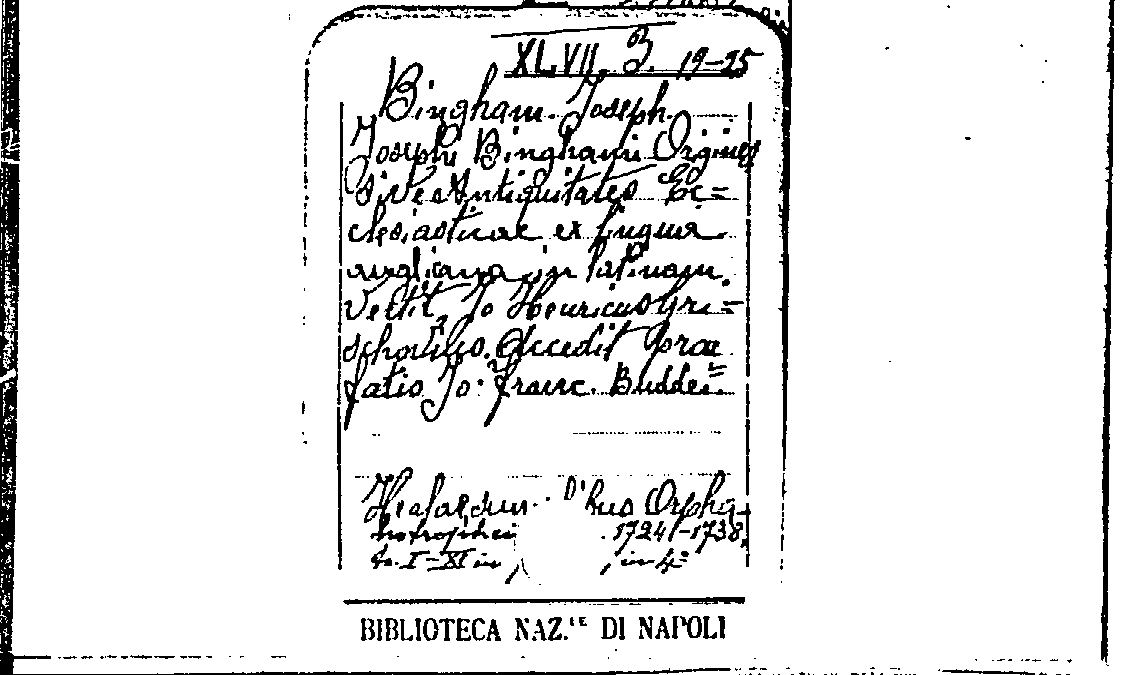 XLVII. 3. 19-25
Bingham. Joseph.
Josephi Binghami Origines
sive Antiquitates Ec=
clesiasticae ex lingua
anglicana in latinam
vertit, Jo Henricus Gri=
schovius. Accedit prae
fatio Jo: Franc. Buddei=
Orpha-
notrophei 1724-1738,
to. I-XI in , in 4º
BIBLIOTECA NAZ.LE DI NAPOLI